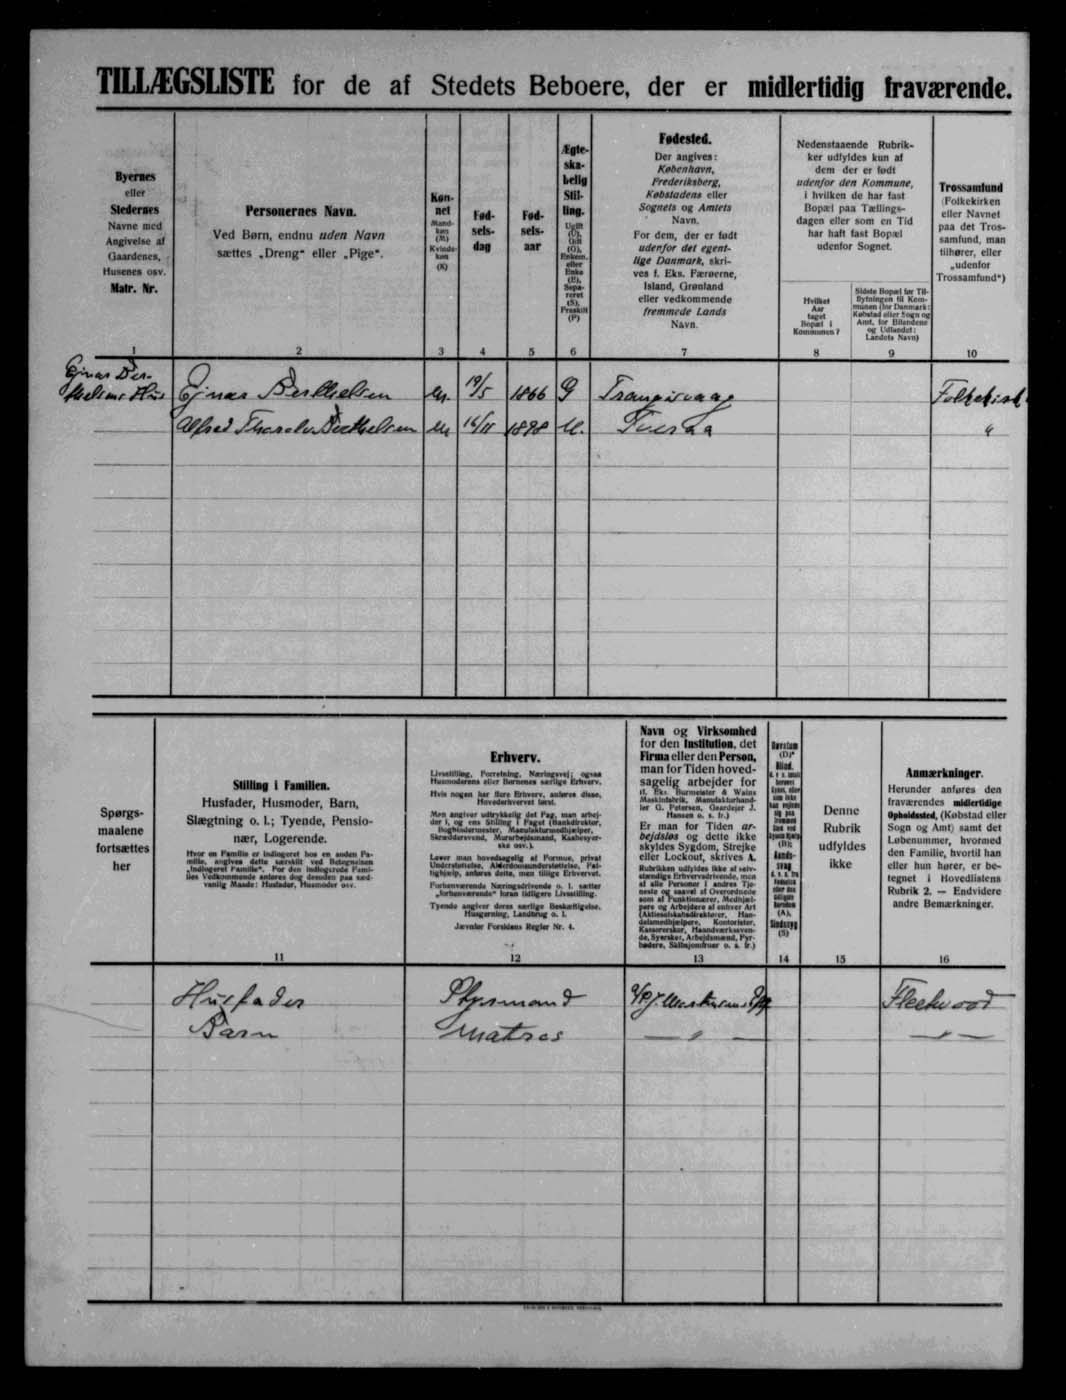 TILLÆGSLISTE for de af Stedets Beboere, der er midlertidig fraværende.
Byernes
eller
Stedernes
Navne med
Angivelse af
Gaardenes,
Husenes osv.
Matr. Nr.
1
Personernes Navn.
Ved Børn, endnu uden Navn
sættes „Dreng“ eller „Pige“.
2
Køn-
net
Mand-
køn
(M)
Kvinde-
køn
(K)
3
Fød-
sels-
dag
4
Fød-
sels-
aar
5
Ægte-
ska-
belig
Stil-
ling.
Ugift
(U),
Gift
(G),
Enkem.
eller
Enke
(E),
Sepa-
reret
(S),
Fraskilt
(F)
6
Fødested.
Der angives:
København,
Frederiksberg,
Købstadens eller
Sognets og Amtets
Navn.
For dem, der er født
udenfor det egent-
lige Danmark, skri-
ves f. Eks. Færøerne,
Island, Grønland
eller vedkommende
fremmede Lands
Navn.
7
Nedenstaaende Rubrik-
ker udfyldes kun af
dem der er født
udenfor den Kommune,
i hvilken de har fast
Bopæl paa Tællings-
dagen eller som en Tid
har haft fast Bopæl
udenfor Sognet.
Hvilket
Aar
taget
Bopæl i
Kommunen?
8
Sidste Bopæl før Til-
flytningen til Kom-
munen (for Danmark:
Købstad eller Sogn og
Amt, for Bilandene
og Udlandet:
Landets Navn)
9
Trossamfund
(Folkekirken
eller Navnet
paa det Tros-
samfund, man
tilhører, eller
„udenfor
Trossamfund“)
10
Ejnar Ber-
thelsens Hus Ejnar Berthelsen M. 19/5 1866 G Trangisvaag Folkekirk
Alfred Berthelsen M 16/11 1898 U. Tveraa "
Spørgs-
maalene
fortsættes
her
Stilling i Familien.
Husfader, Husmoder, Barn,
Slægtning o. l.; Tyende, Pensio-
nær, Logerende.
Hvor en Familie er indlogeret hos en anden Fa-
milie, angives dette særskilt ved Betegnelsen
„Indlogeret Familie“. For den indlogerede Fami-
lies Vedkommende anføres dog desuden paa sæd-
vanlig Maade: Husfader, Husmoder osv.
11
Erhverv.
Livsstilling, Forretning, Næringsvej; ogsaa
Husmoderens eller Børnenes særlige Erhverv.
Hvis nogen har flere Erhverv, anføres disse,
Hovederhvervet først.
Man angiver udtrykkelig det Fag, man arbej-
der i, og ens Stilling i Faget (Bankdirektør,
Bogbindermester, Manufakturmedhjælper,
Skræddersvend, Murarbejdsmand, Kaabesyer-
ske osv.).
Lever man hovedsagelig af Formue, privat
Understøttelse, Alderdomsunderstøttelse, Fat-
tighjælp, anføres dette, men tillige Erhvervet.
Forhenværende Næringsdrivende o. l. sætter
„forhenværende“ foran tidligere Livsstilling.
Tyende angiver deres særlige Beskæftigelse,
Husgerning, Landbrug o. l.
Jævnfør Forsidens Regler Nr. 4.
12
Navn og Virksomhed
for den Institution, det
Firma eller den Person,
man for Tiden hoved-
sagelig arbejder for
(f. Eks. Burmeister & Wains
Maskinfabrik, Manufakturhand-
ler G. Petersen, Gaardejer J.
Hansen o. s. fr.)
Er man for Tiden ar-
bejdsløs og dette ikke
skyldes Sygdom, Strejke
eller Lockout, skrives A.
Rubrikken udfyldes ikke af selv-
stændige Erhvervsdrivende, men
af alle Personer i andres Tje-
neste og saavel af Overordnede
som af Funktionærer, Medhjæl-
pere og Arbejdere af enhver Art
(Aktieselskabsdirektører, Han-
delsmedhjælpere, Kontorister,
Kassererskor, Haandværkssven-
de, Syersker, Arbejdsmænd, Fyr-
bødere, Skibsjomfruer o. s. fr.)
13
14
Denne
Rubrik
udfyldes
ikke
15
Anmærkninger.
Herunder anføres den
fraværendes midlertidige
Opholdssted, (Købstad eller
Sogn og Amt) samt det
Løbenummer, hvormed
den Familie, hvortil han
eller hun hører, er be-
tegnet i Hovedlistens
Rubrik 2. — Endvidere
andre Bemærkninger.
16
Husfader Styrmand Fleetwood
Barn Matros — " — — " —